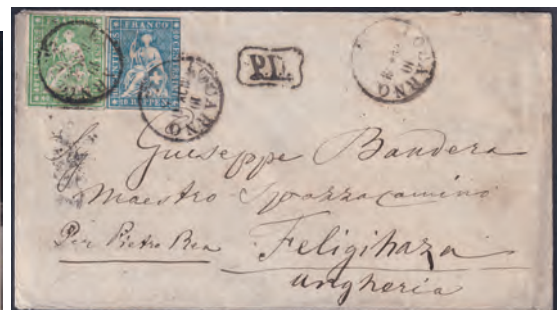 FRANCO
FRANCO
10 RAPPEN
LOCARNO
P.D.
LOCARNO
Giuseppe Bandera
Maestro Spazzacamino
Per Pietro Bea
Feligihaza
Ungheria